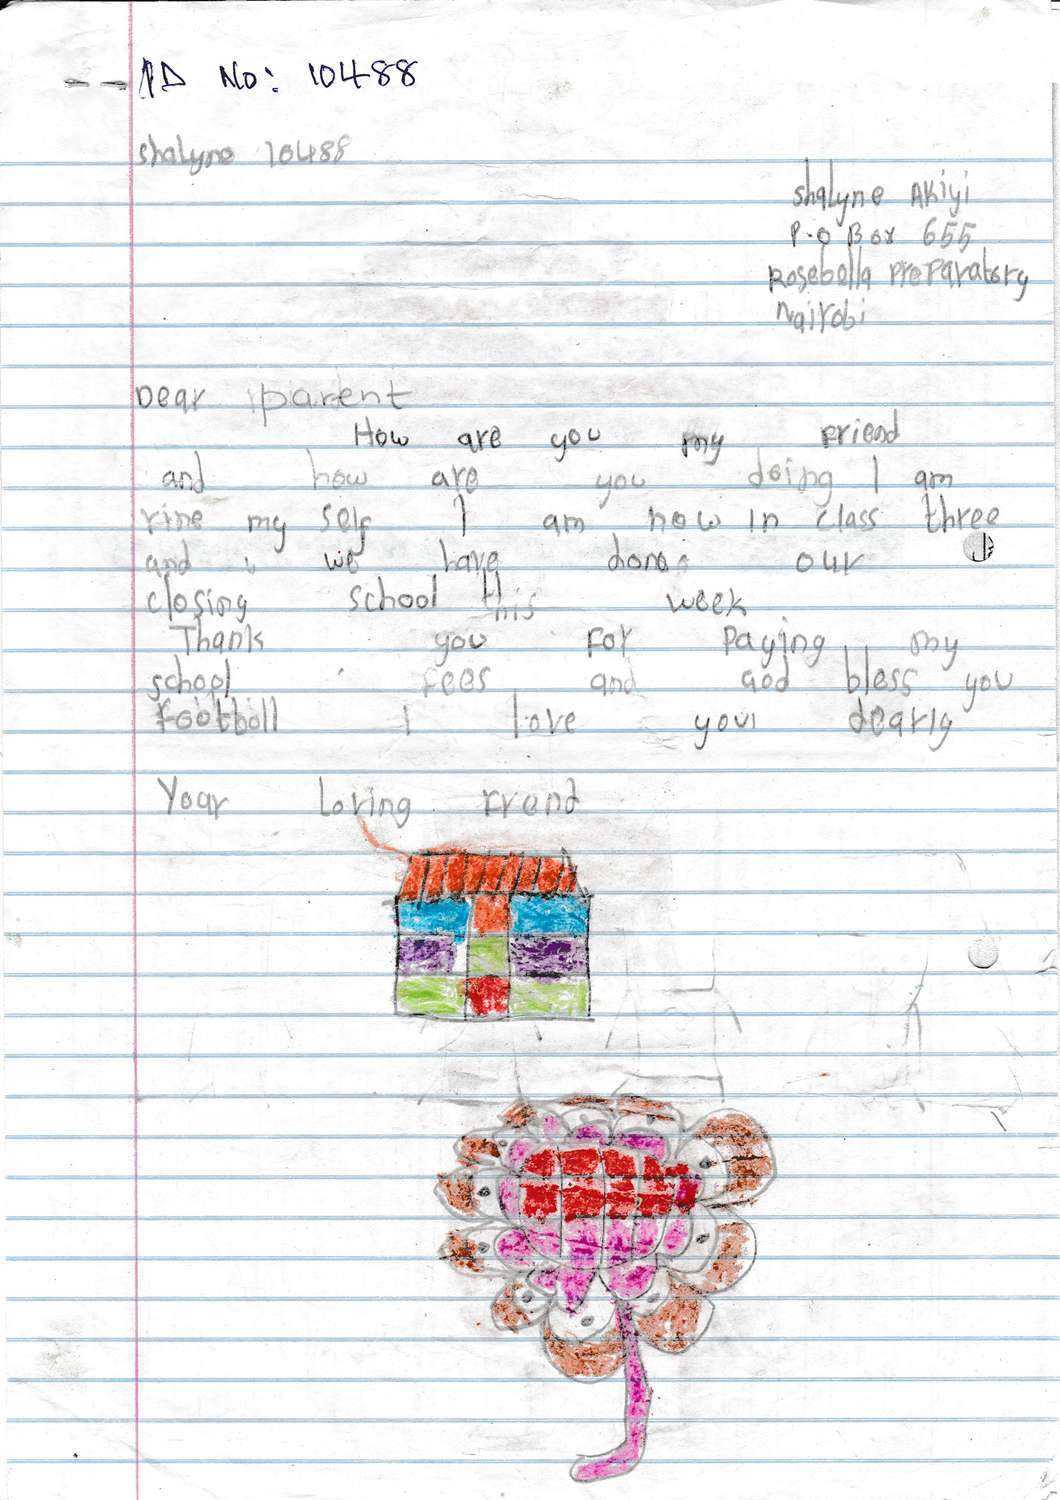 ID No: 10488
Shalyne 10488
Shalyne Akiyi
P.o Box 655
Rosebella Preparatory
Nairobi
Dear parent
How are you my friend
and how are you doing I am
fine my self I am now in class three
and we have done our
closing school this week
Thank you for paying my
school fees and God bless you
footboll I love you dearly
Your loving frend